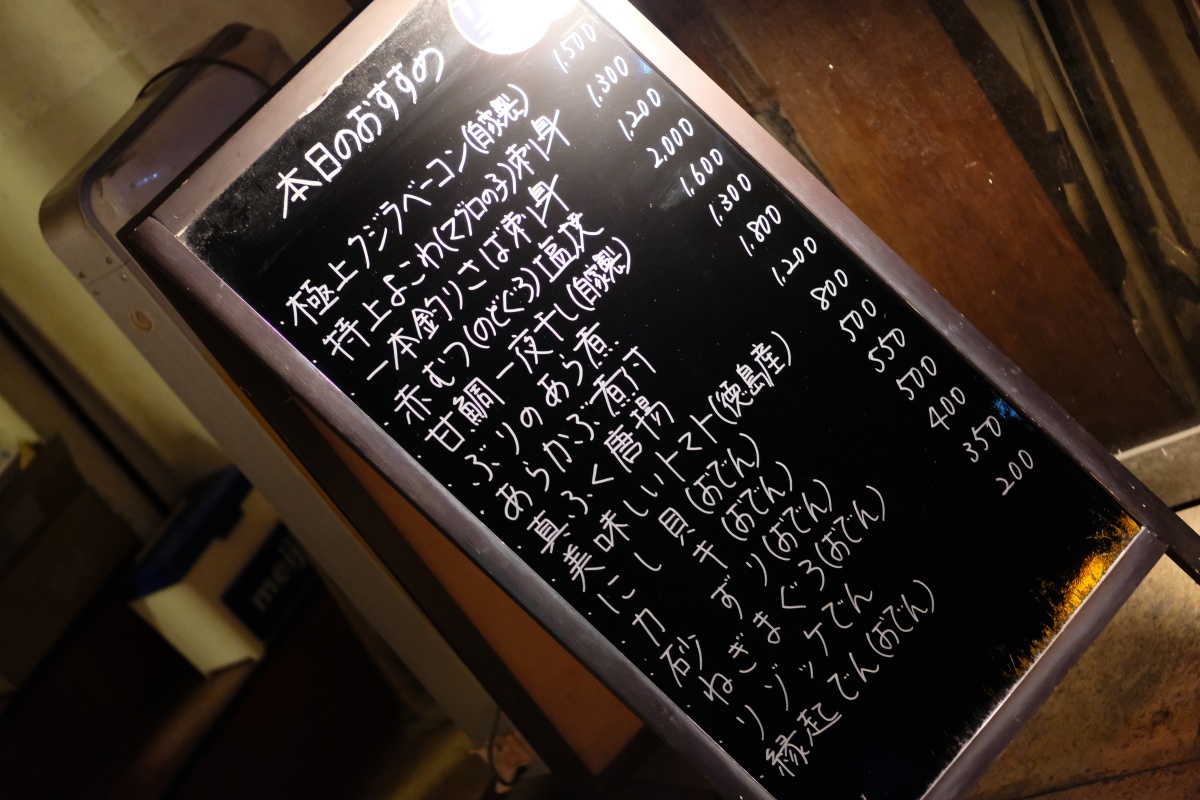 本日のおすすめ
・極上クジラベーコン(自家製) 1.500
・特上よこわ(マグロの子)刺り身 1.300
・一本釣りさば刺り身 1.200
・赤むつ(のどぐろ)塩焼 2.000
・甘鯛一夜干し(自家製) 1.600
・ぶりのあら煮 1.300
・あらかぶ煮付 1.800
・真ふく唐揚 1.200
・美味しいトマト(徳島産) 800
・にし貝(おでん) 500
・カキ(おでん) 550
・砂ずり(おでん) 500
・ねぎまぐろ(おでん) 400
・リゾッケでん 350
・縁起でん(おでん) 200
meiji